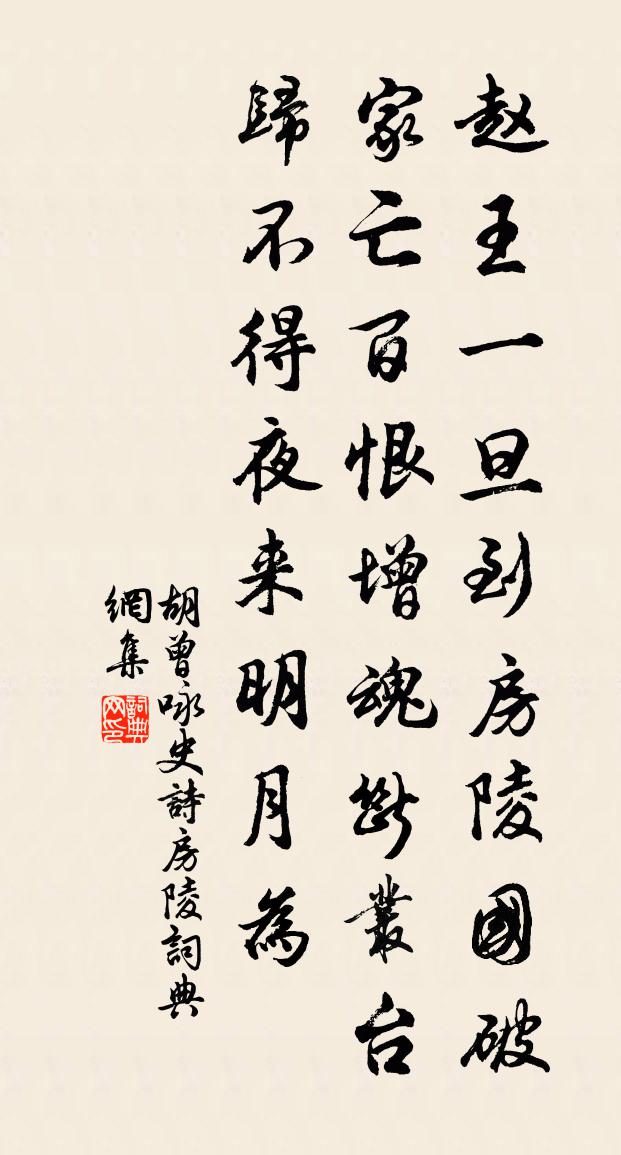 赵王一旦到房陵國破
家亡百恨增魂斷叢台
歸不得夜来明月為
胡曾咏史詩房陵詞典
網集
詞典
网印